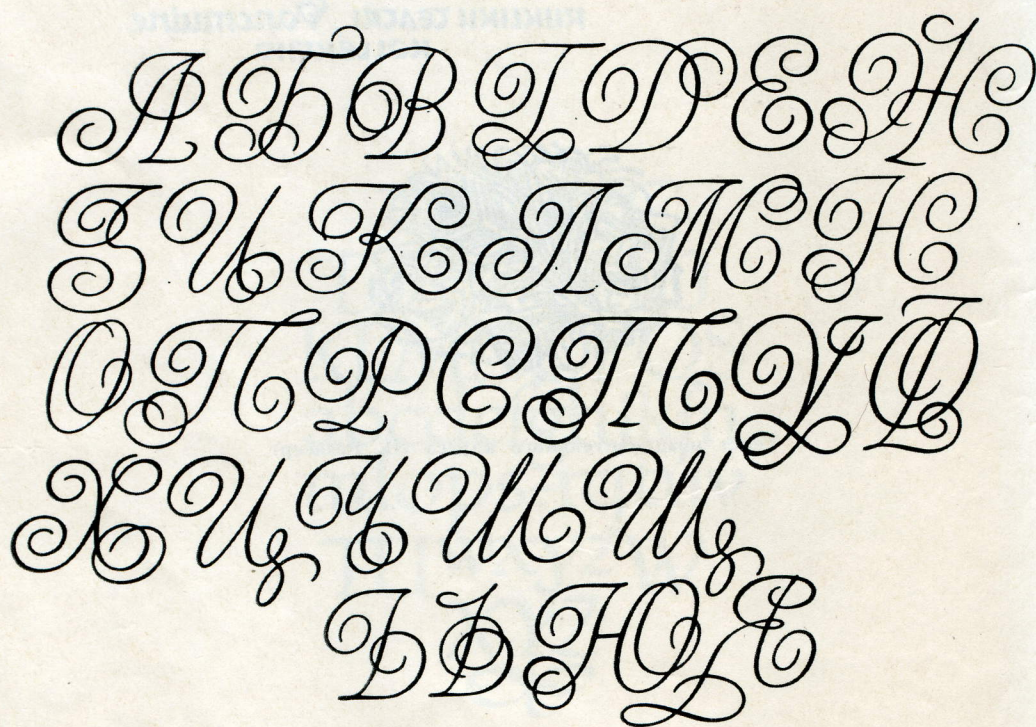 А Б В Г Д Е Ж
З И К Л М Н
О П Р С Т У Ф
Х Ц Ч Ш Щ
Ъ Ь Ю Я